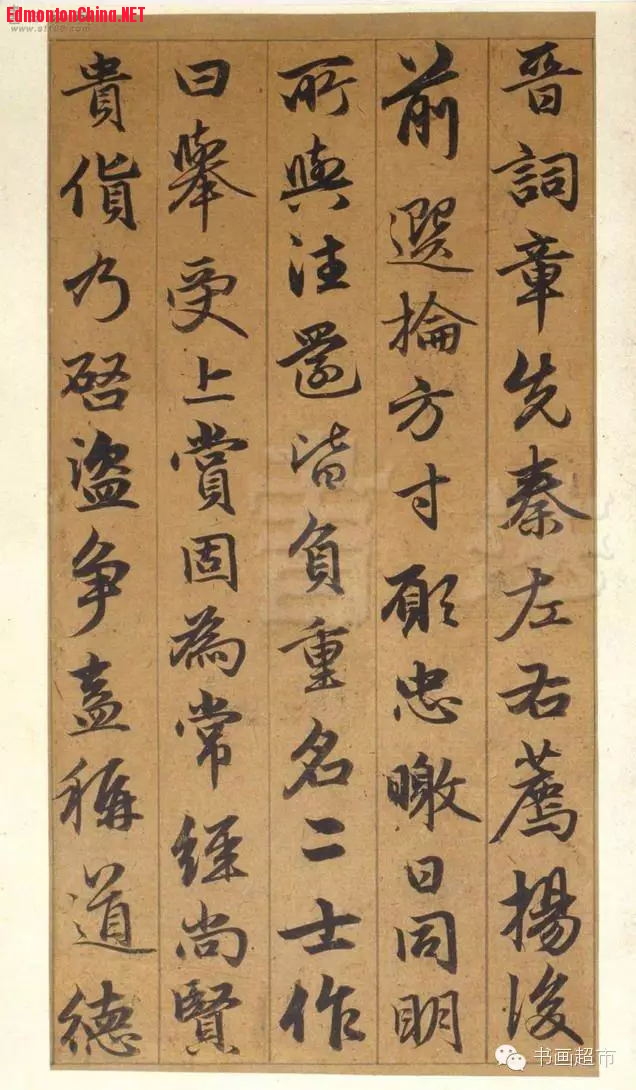 EdmontonChina.NET
晉詞章先秦左右薦揚後
前選掄方寸願忠暾日同明
所與注籑皆負重名二士作
曰舉受上賞固為常經尚賢
貴貨乃啓盜爭盍稱道德
书画超市